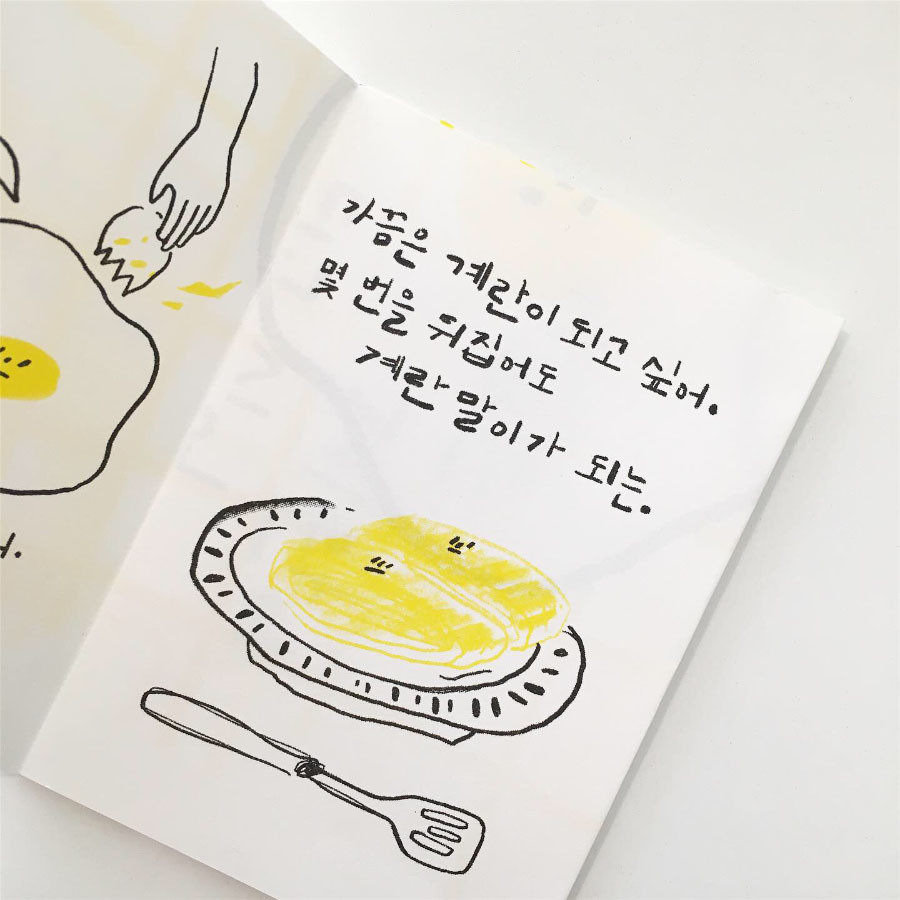 가끔은 계란이 되고 싶어.
몇 번을 뒤집어도
계란 말이가 되는.